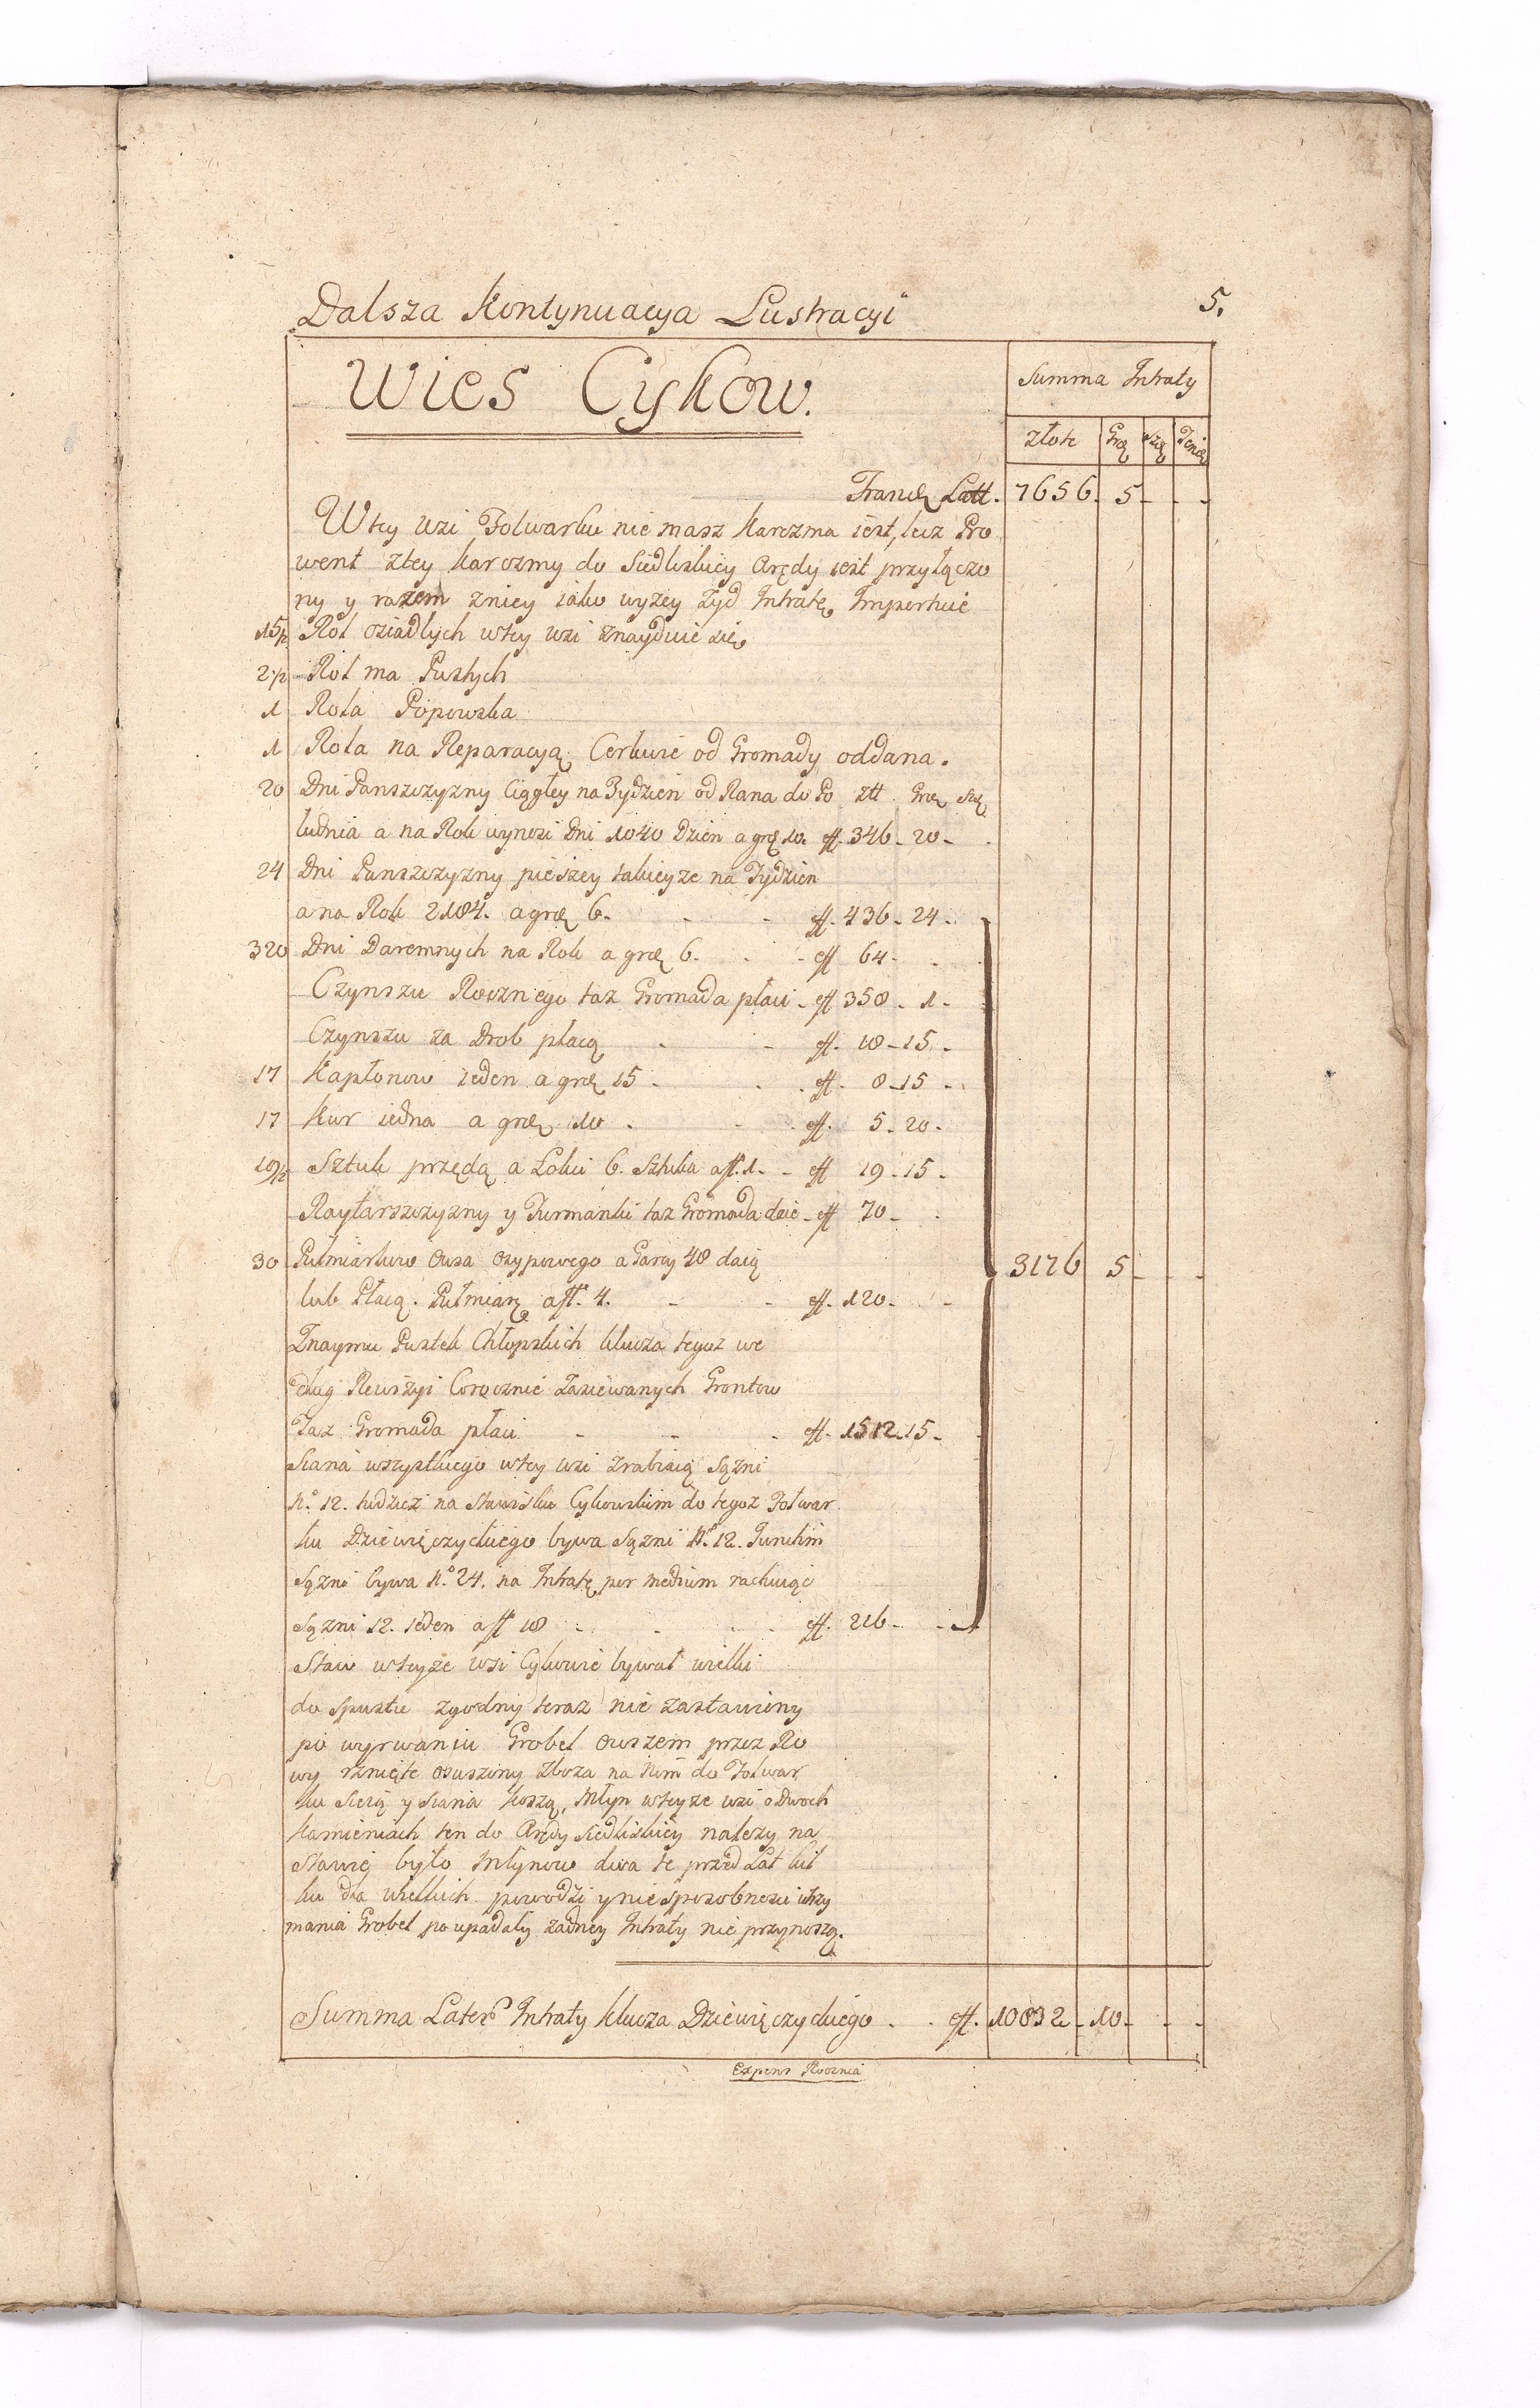 Dalsza Kontynuacya Lustracyi 5.
Wies Cykow.
Summa Intraty
złote Grę Szę
Transę Latt. 7656. 5 - - -
Wtey wsi Folwarku nie masz Karczma iest, lecz Pro
went ztey karczmy do Siedliskiey Arędy iest przyłączo
ny y razem zniey iako wyzey Zyd Intratę Importuie
15½ Rol osiadlych wtey wsi znayduie się
2½ Rol ma Pustych
1 Rola Popowska
1 Rola na Reparacyą Cerkwie od Gromady oddana.
20 Dni Panszczyzny Ciągłey na Tydzien od Rana do Po złł. Grę Szę
ludnia a na Rok wynosi Dni 1040 Dzien a grę 10. ff. 346 - 20 -
24 Dni Panszczyzny pieszey takieyze na Tydzien
a na Rok 2184. a grę 6. - - ff. 436 - 24 -
320 Dni Daremnych na Rok a grę 6. - - ff 64 - -
Czynszu Rocznego taz Gromada płaci - ff 358 - 1 -
Czynszu za Drob płacą - - ff. 18 - 15 -
17 Kapłonow ieden a grę 15 - - ff. 8 - 15 -
17 Kur iedna a grę 10 - - ff. 5 - 20 -
19½ Sztuk przędą a Łokci 6. Sztuka a ff. 1. - ff 19 - 15 -
Raytarszczyzny y Furmanki taz Gromada daie - ff 70 - -
30 Pułmiarkow Owsa Osypowego a Garcy 48 daią 3176 5 - - -
lub Płacą. Pułmiarę a ff. 4. - - ff. 120 - -
Znaymu Pustek Chłopskich klucza tegoz we
dług Rewizyi Corocznie Zasiewanych Grontow
Taz Gromada płaci - - - ff. 1512 - 15 -
Siana wszystkiego wtey wsi zrabiaią Sązni
N.o 12. tudziez na Stawisku Cykowskim do tegoz Folwar
ku Dziewięczyckiego bywa Sązni N.o 12. Junctim
Sązni bywa N.o 24. na Intratę per medium rachuiąc
Sązni 12. ieden a ff 18 - - - ff. 216 - -
Staw wteyze wsi Cykowie bywał wielki
do spustu zgodny teraz nie zastawiony
po wyrwaniu Grobel owszem przez Ro
wy rznięte osuszony Zboza na nim do Folwar
ku Sieią y Siana koszą, Młyn wteyze wsi o Dwoch
kamieniach ten do Arędy Siedliskiey nalezy na
Stawie było Młynow dwa te przed Lat kil
ku dla wielkich powodzi y niesposobnosci utrzy
mania Grobel poupadały zadney Intraty nie przynoszą.
Summa Lateris Intraty klucza Dziewięczyckiego - - ff. 10832 - 10 - - -
Expens Roczna